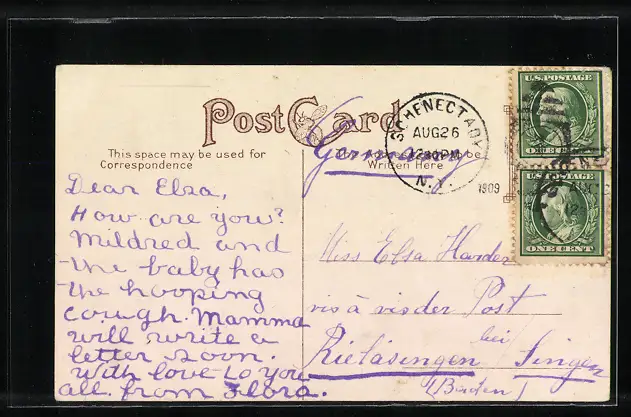 Post Card
This space may be used for
Correspondence
Written Here
Germany
SCHENECTADY
AUG 26
N.Y.
1909
U.S. POSTAGE
ONE CENT
U.S. POSTAGE
ONE CENT
Dear Elsa,
How are you?
Mildred and
the baby has
the hooping
cough. Mamma
will write a
letter soon.
With love to you
all. from Flora.
Miss Elsa Harder
vis à vis der Post
Rielasingen bei Singen
(Baden)